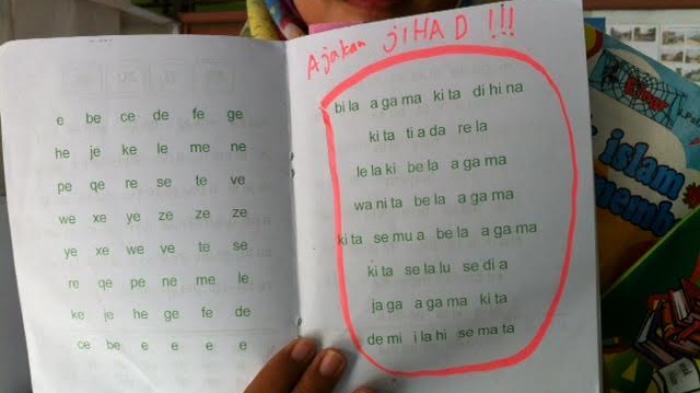 e be ce de fe ge
he je ke le me ne
pe qe re se te ve
we xe ye ze ze ze
ye xe we ve te se
re qe pe ne me le
ke je he ge fe de
ce be e e e e
Ajakan jiHAD !!!
bi la a ga ma ki ta di hi na
ki ta ti a da re la
le la ki be la a ga ma
wa ni ta be la a ga ma
ki ta se mu a be la a ga ma
ki ta se la lu se di a
ja ga a ga ma ki ta
de mi i la hi se ma ta
islam